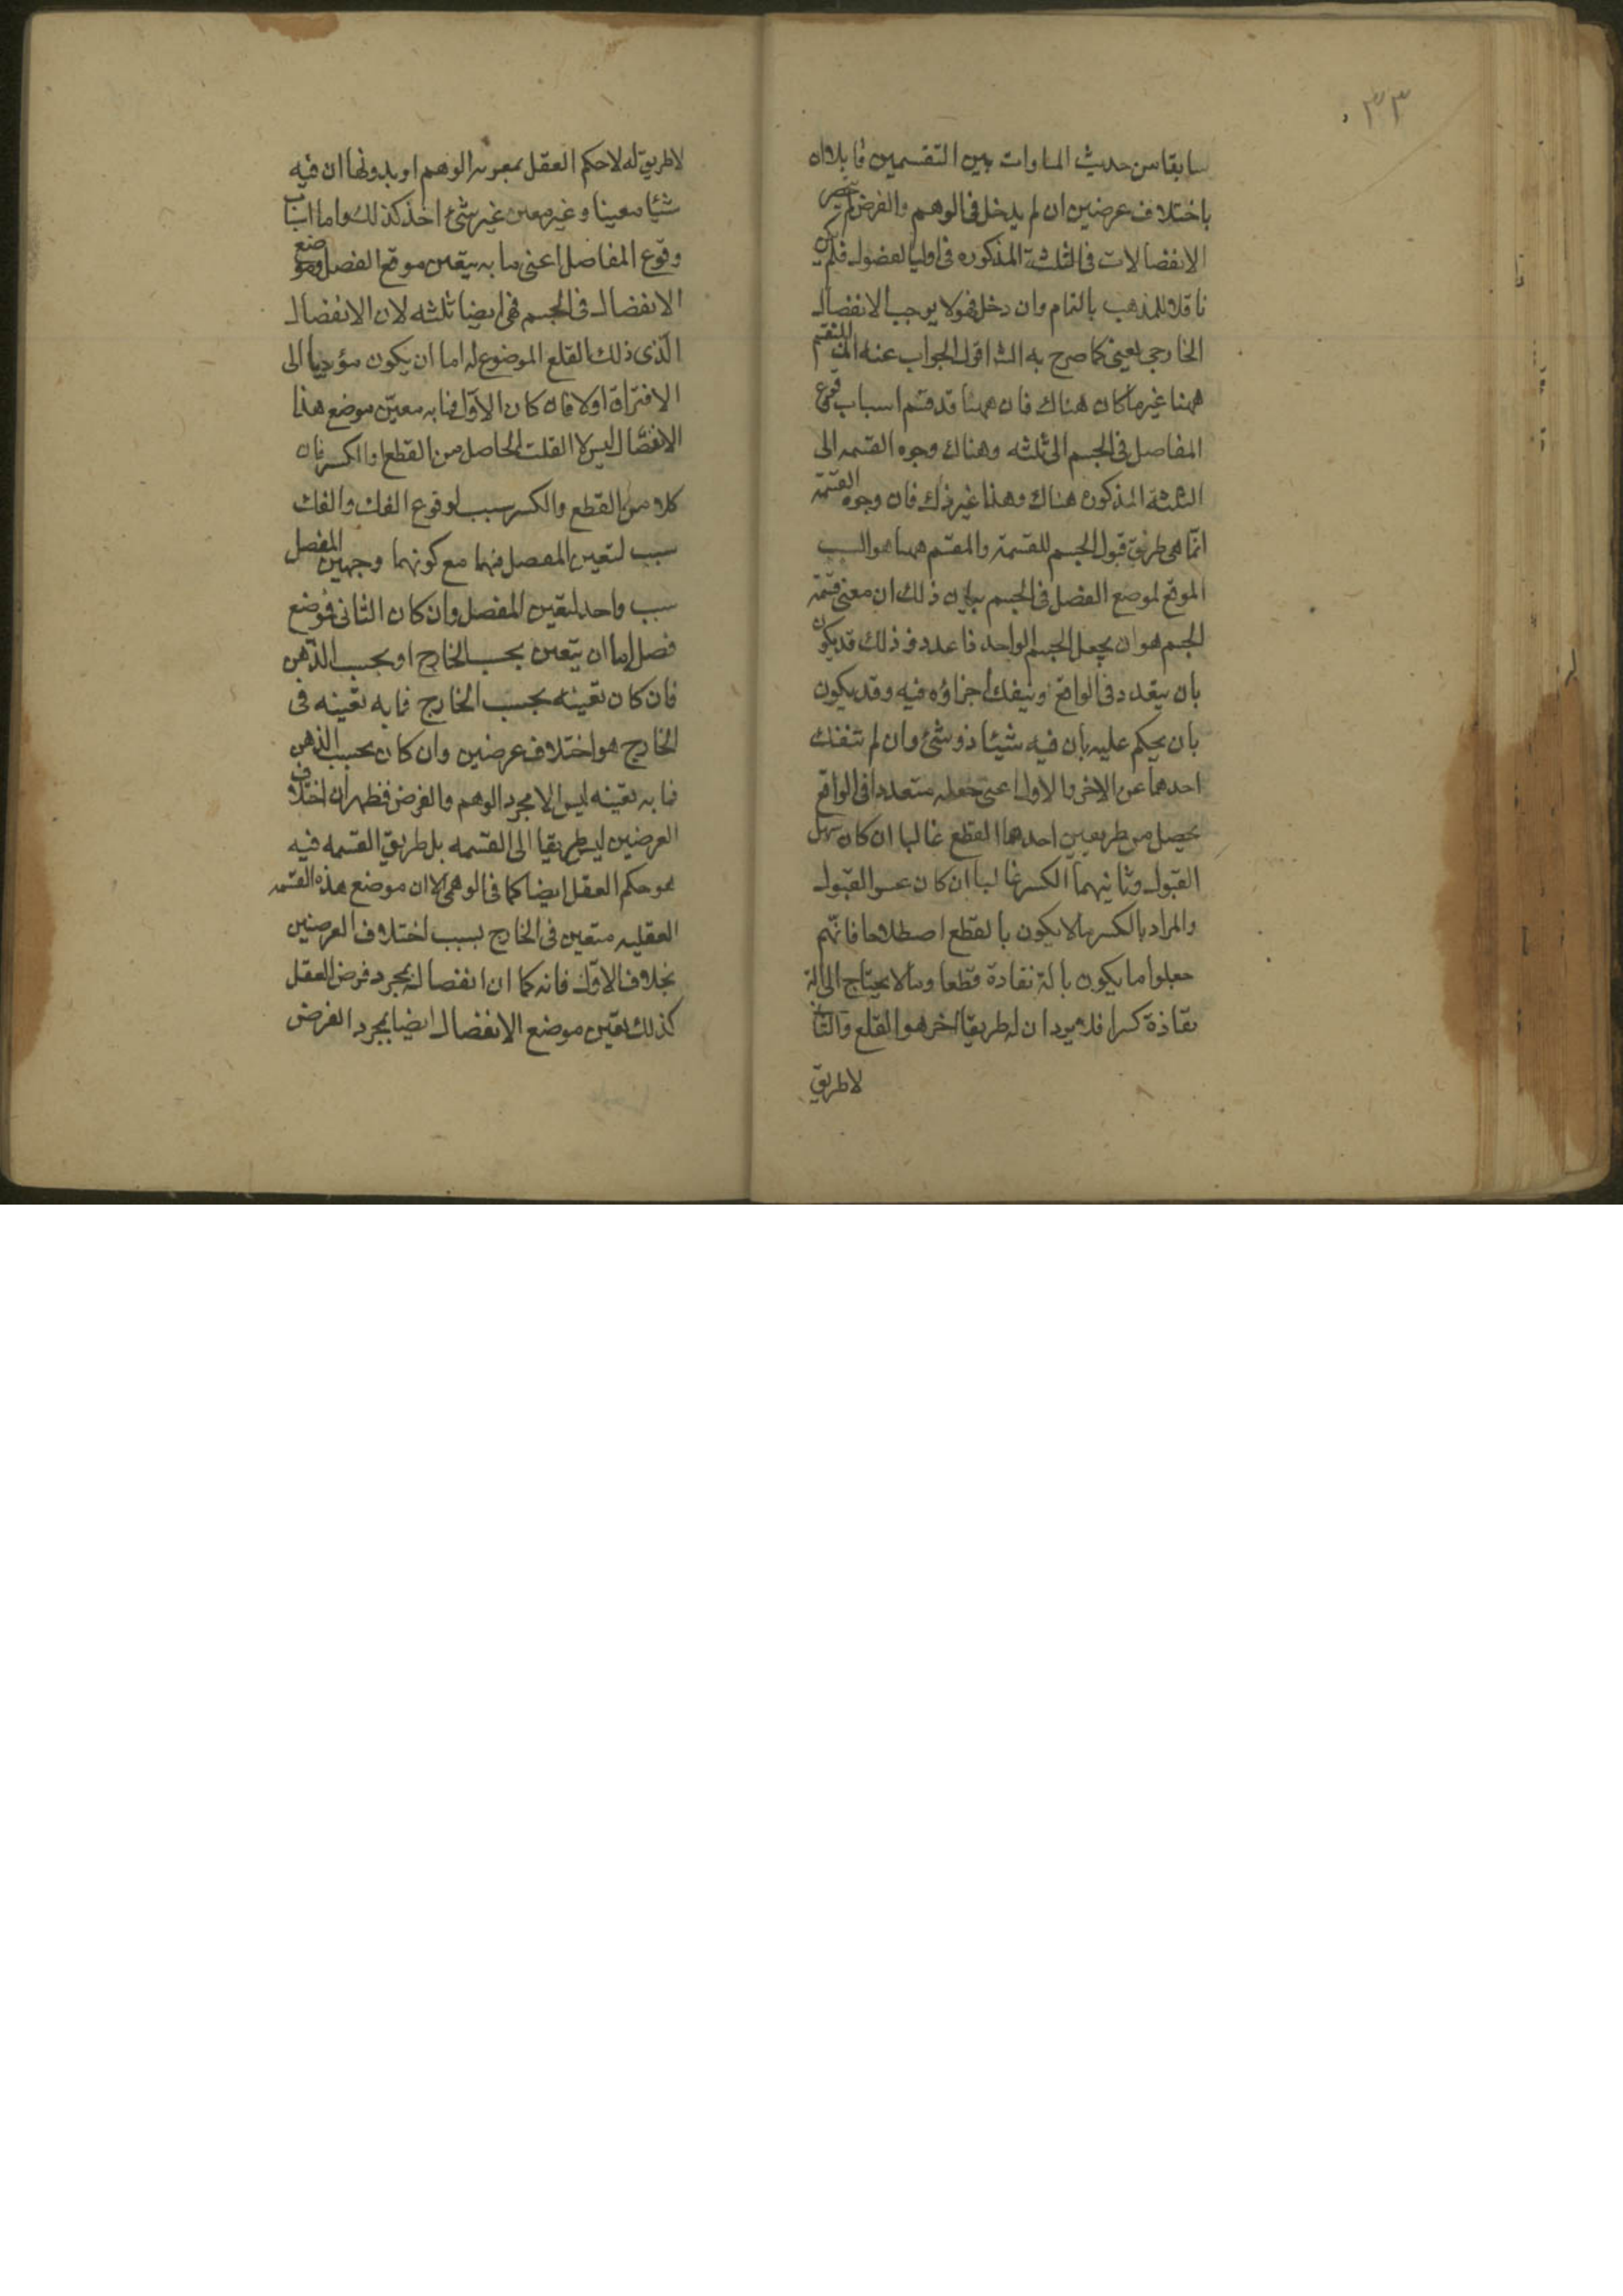 ٣٣
سابقا من حديث المساوات بين التقسمين فا بلان
باختلاف عرضين ان لم يدخل فى الوهم والفرض لم ينحصر
الانفصالات فى الثلثة المذكوره فى اوليا لفصول فلم يكن
ناقلا للمذهب بالتمام وان دخل فهو لا يوجب الانفصال
الخارجى يعينى كما صرح به الش اقول الجواب عنه ان المنقسم
ههنا غير ما كان هناك فان ههنا قد قسم اسباب وقوع
المفاصل فى الجسم الى ثلثه وهناك وجوه القسمه الى
الثلثة المذكوره هناك وهذا غير ذلك فان وجوه القسمة
انما هى طرق قبول الجسم للقسمة والمقسم ههنا هو السبب
الموقع لموضع الفصل فى الجسم بيان ذلك ان معنى قسمة
الجسم هو ان يجعل الجسم الواحد ذا عدد و ذلك قد يكون
بان يتعدد فى الواقع وينفك اجزاؤه فيه وقد يكون
بان يحكم عليه بان فيه شيئا ذو شئ وان لم تنفك
احدهما عن الاخر والاول اعنى جعله متعددا فى الواقع
يحصل من طريقين احدهما القطع غالبا ان كان سهل
القبول وثانيهما الكسر غالبا ان كان عسر القبول
والمراد بالكسر ما لا يكون بالقطع اصطلاحا فانهم
جعلوا ما يكون بالة نفاذة قطعا وما لا يحتاج الى الة
نفاذة كسرا فلا يرد ان له طريقا اخر هو القلع والثانى
لا طريق
لا طريق له لا حكم العقل بمعونه الوهم او بدونها ان فيه
شيئا معينا و غير معين غير شئ اخذ كذلك واما اسباب
وقوع المفاصل اعنى ما به يتعين موقع الفصل وموضع
الانفصال فى الجسم فهى ايضا ثلثه لان الانفصال
الذى ذلك القلع الموضوع له اما ان يكون مؤديا الى
الافتراق اولا فان كان الاول فما به معين موضع هذا
الانفصال ليس الا الفلت الحاصل من القطع او الكسر فان
كلا من القطع والكسر سبب لوقوع الفك والفك
سبب لتعين المفصل فهما مع كونهما وجهين المفصل
سبب واحد لتعين المفصل وان كان الثانى فموضع
فصل اما ان يتعين بحسب الخارج او بحسب الذهن
فان كان تعينه بحسب الخارج فما به تعينه فى
الخارج هو اختلاف عرضين وان كان بحسب الذهن
فما به تعينه ليس الا مجرد الوهم والفرض فظهر ان اختلاف
العرضين ليس طريقا الى القسمه بل طريق القسمه فيه
هو حكم العقل ايضا كما فى الوهمى الا ان موضع هذه القسمه
العقليه متعين فى الخارج بسبب اختلاف العرضين
بخلاف الاول فانه كما ان انفصاله بمجرد فرض العقل
كذلك تعين موضع الانفصال ايضا بمجرد الفرض